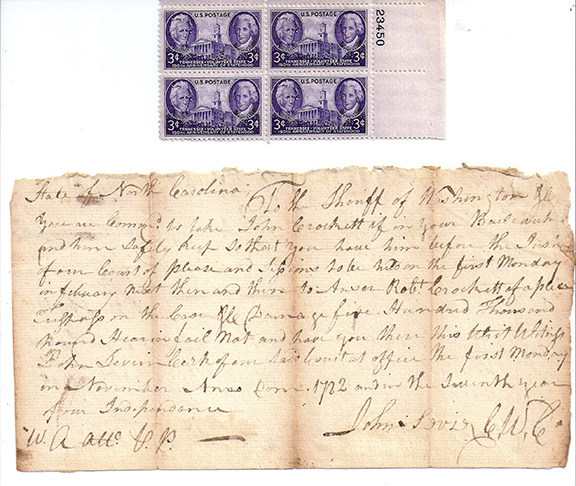 U.S. POSTAGE U.S. POSTAGE
3¢ 3¢ 3¢ 3¢
TENNESSEE-VOLUNTEER STATE TENNESSEE-VOLUNTEER STATE
150TH ANNIVERSARY OF STATEHOOD 150TH ANNIVERSARY OF STATEHOOD
23450
U.S. POSTAGE U.S. POSTAGE
3¢ 3¢ 3¢ 3¢
TENNESSEE-VOLUNTEER STATE TENNESSEE-VOLUNTEER STATE
150TH ANNIVERSARY OF STATEHOOD 150TH ANNIVERSARY OF STATEHOOD
State of North Carolina To the Sheriff of Washington
You are Comm'd to take John Crockett if in your
and him Safely Keep So that you have him before the
of our Court of please and to be held on the first Monday
in next then and there to Robt Crockett of a plea
on the Case Damage five Hundred Thousand
Hearin fail Not and have you there this Writ
John Clerk of our Said Court at office the first Monday
in November 1782 and in the Seventh year
of our Independence
W. A
John C W C